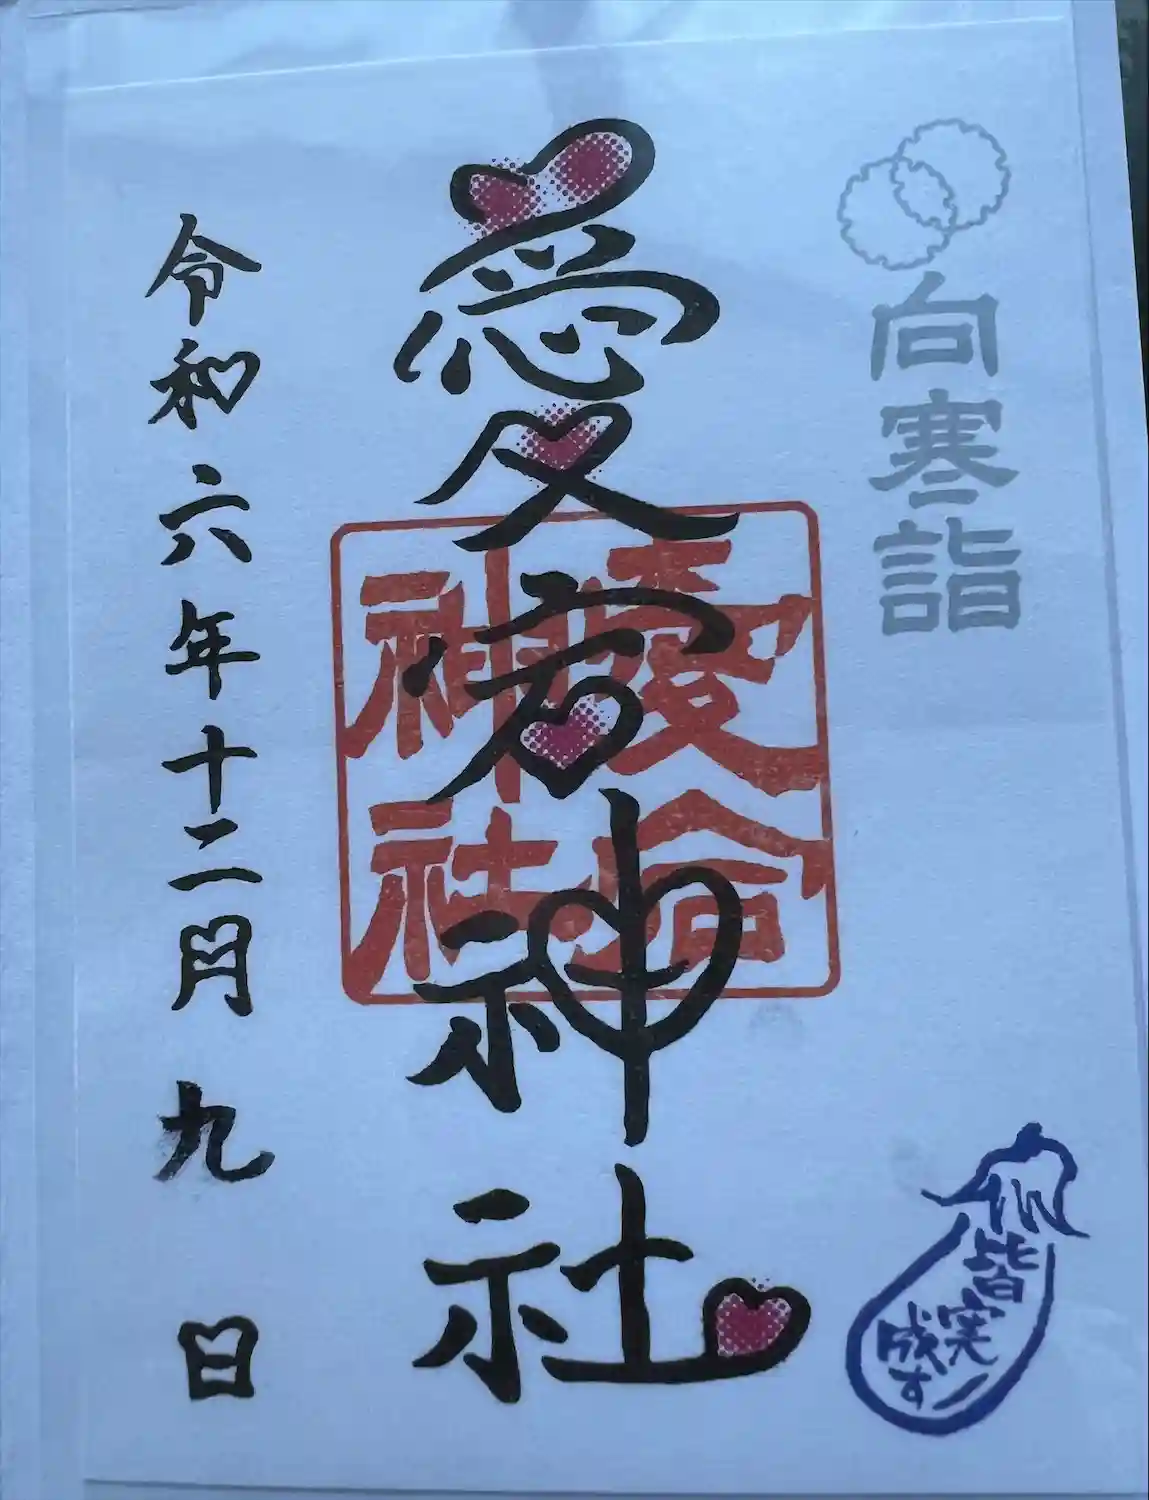 向寒詣
愛宕神社
愛宕
神社
令和六年十二月九日
皆
実
成す